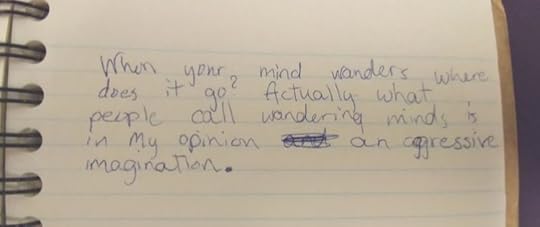 When your mind wanders where
does it go? Actually what
people call wandering minds is
in my opinion an aggressive
imagination.